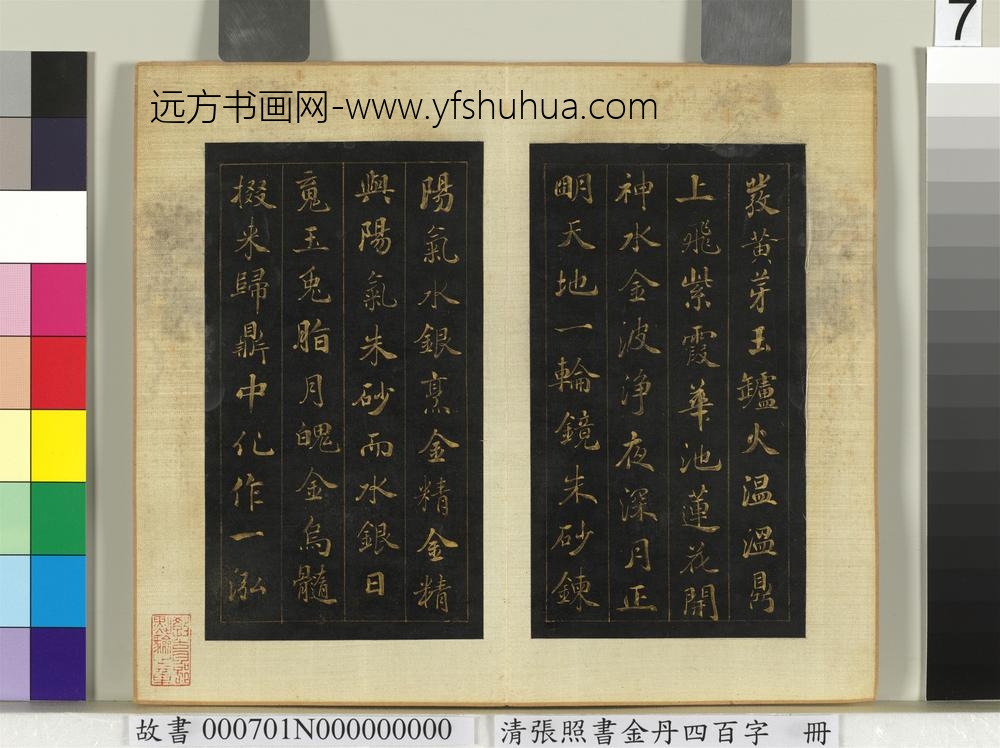 7
远方书画网-www.yfshuhua.com
蕞黄芽玉鑪火温温鼎
上飛紫霞華池蓮花開
神水金波淨夜深月正
明天地一輪鏡朱砂鍊
陽氣水銀烹金精金精
與陽氣朱砂而水銀日
䰟玉兔脂月魄金烏髓
掇来歸鼎中化作一泓
故書 000701N000000000
清張照書金丹四百字 冊